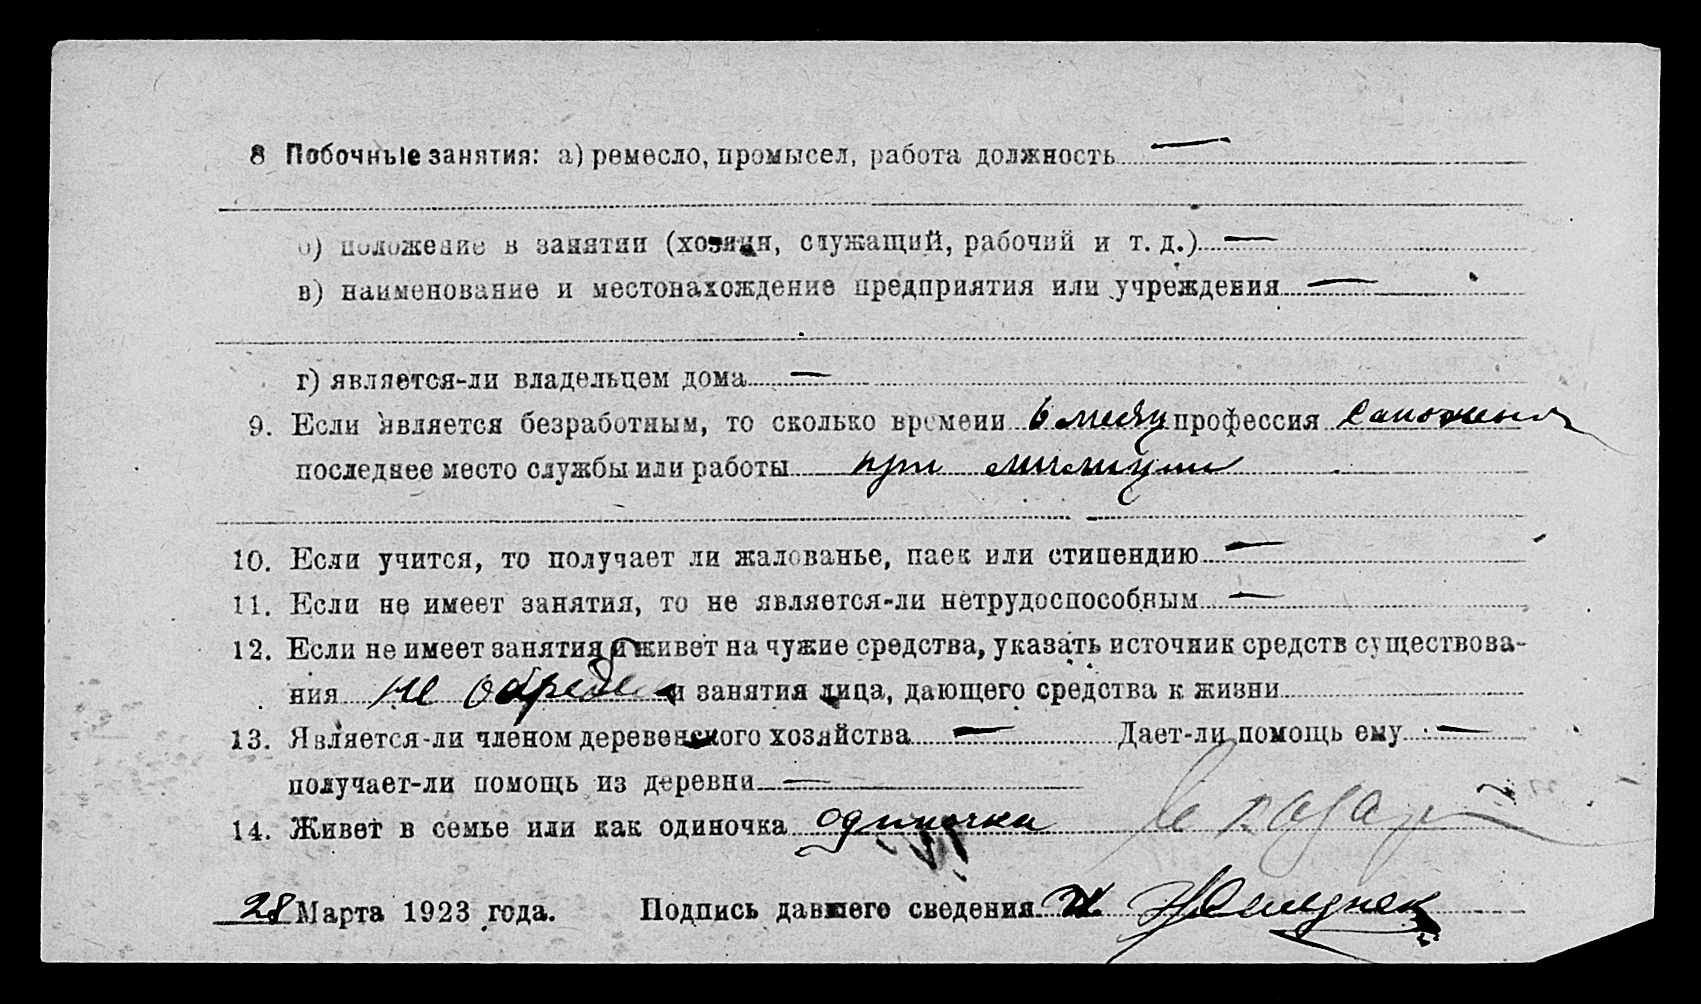 8 Побочные занятия: а) ремесло, промысел, работа должность —
б) положение в занятии (хозяин, служащий, рабочий и т. д.) —
в) наименование и местонахождение предприятия или учреждения —
г) является-ли владельцем дома —
9. Если является безработным, то сколько времени 6 месяц профессия
последнее место службы или работы при милиции
10. Если учится, то получает ли жалованье, паек или стипендию —
11. Если не имеет занятия, то не является-ли нетрудоспособным —
12. Если не имеет занятия и живет на чужие средства, указать источник средств существова-
ния не и занятия лица, дающего средства к жизни
13. Является-ли членом деревенского хозяйства — Дает-ли помощь ему —
получает-ли помощь из деревни —
14. Живет в семье или как одиночка одиночка
28 Марта 1923 года. Подпись давшего сведения